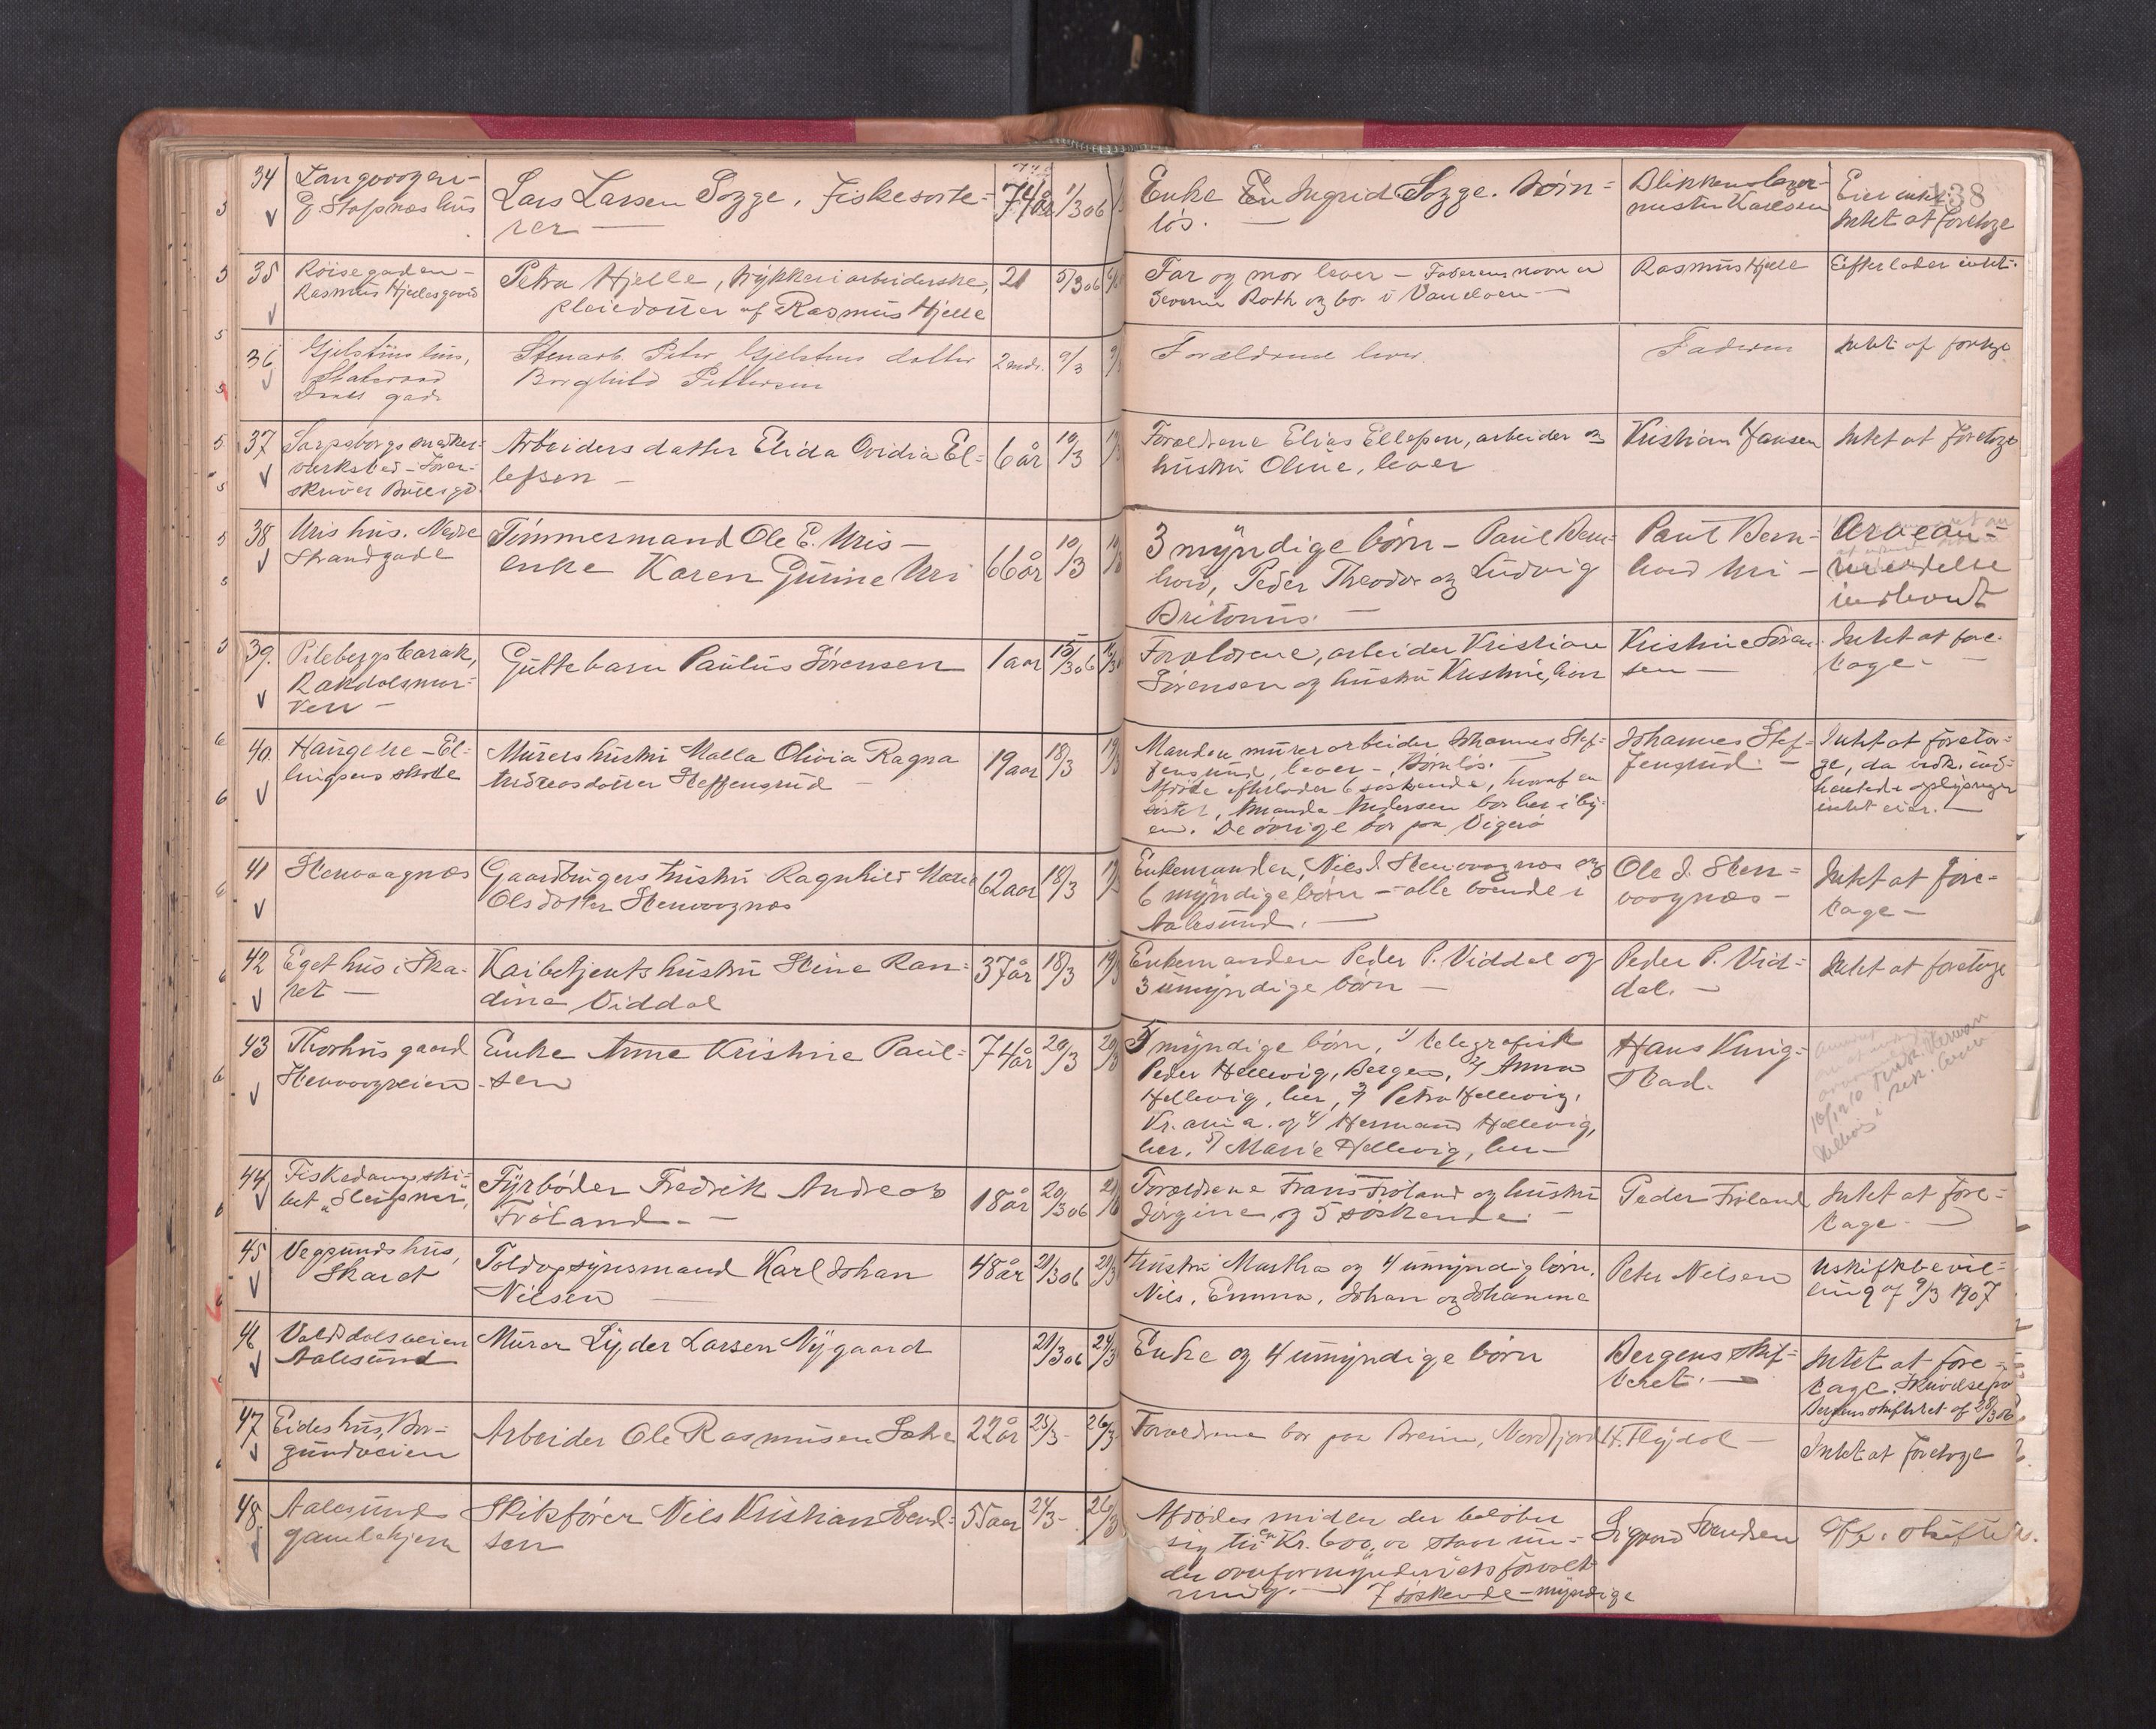 138
34 Langvaagen-
G. Stafsnes hus
Lars Larsen Sogge, Fiskesorte-
rer —
74 år 1/3 06
Enke Ingrid Sogge. Børn-
løs.
Blikkenslager-
mester Karlsen
Eier intet.
Intet at foretage
35 Röisegaden -
Rasmus Hjellesgaard
Petra Hjelle, trykkeriarbeiderske,
pleiedatter af Rasmus Hjelle
21 5/3 06
Far og mor lever - Faderens navn er
Severin Roth og bor i Vanelven -
Rasmus Hjelle
Efterlader intet.
36 Gjelstens hus,
gade
Stenarb. Peter Gjelstens datter
Borghild Pettersen
2 mdr. 9/3
Forældrene lever.
Faderen
Intet at foretage
37 Sarpsborgs snedker-
værksted - Soren-
skriver Bulls gd.
Arbeiders datter Elida Ovidia El-
lefsen -
6 år 10/3
Forældrene Elias Ellefsen, arbeider og
hustru Oline, lever
Kristian Jansen
Intet at foretage
38 Uris hus. Nedre
Strandgade
Tömmermand Ole E. Uris -
enke Karen Gurine Uri
66 år 10/3
3 myndige børn - Paul Bern-
hard, Peder Theodor og Ludvig
Britonius. -
Paul Bern-
hard Uri -
Arvean-
meldelse
indsendt
39. Pilebergs barak,
Rakdalsmur-
ven -
Guttebarn Paulus Sørensen
1 aar 15/3 06
Forældrene, arbeider Kristian
Sörensen og hustru Kristine, lever
Kristine Sören-
sen -
Intet at fore-
tage. -
40. Haugene - El-
lingsens skole
Murers hustru Malla Olivia Ragna
Andreasdatter Steffensund -
19 aar 18/3 19/3
Manden murerarbeider Johannes Stef-
fensund, lever - Børnløs. -
Afdøde efterlader 6 søskende, hvoraf en
søster, Amanda Andersen bor her i by-
en. De øvrige bor paa Vigerö
Johannes Stef-
fensund. -
Intet at foreta-
ge, da
hentede oplysninger
intet eier. -
41 Stenvaagnæs
Gaardbrugers hustru Ragnhild Marie
Olsdatter Stenvaagnæs
62 aar 18/3
Enkemanden, Niels J. Stenvaagnæs og
6 myndige børn - alle boende i
Aalesund. -
Ole J. Sten-
vaagnæs -
Intet at fore-
tage -
42 Eget hus i Ska-
ret -
Kaibetjents hustru Stine Ran-
dine Viddal
37 år 18/3 19/3
Enkemanden Peder P. Viddal og
3 umyndige børn -
Peder P. Vid-
dal. -
Intet at foretage
43 Thorhus gaard
Stenvaagveien
Enke Anne Kristine Paul-
sen
74 år 20/3 20/3
5 myndige børn, 1/ telegrafist
Peder Hellevig, Bergen, 2/ Anna
Hellevig, her, 3/ Petra Hellevig,
Kr.ania. og 4/ Hermand Hellevig,
her, 5/ Marie Hellevig, her -
Hans Kunig-
stad.
44 Fiskedampski-
bet "Sleipner",
Fyrböder Fredrik Andreas
Fröland. -
18 år 20/3 06
Forældrene Frans Fröland og hustru
Jörgine og 5 søskende. -
Peder Fröland
Intet at fore-
tage. -
45 Vegsunds hus,
Skaret
Toldopsynsmand Karl Johan
Nilsen -
48 år 21/3 06
Hustru Martha og 4 umyndig børn.
Nils, Emma, Johan og Johanne
Peter Nelsen
Uskiftebevil-
ling af 9/3 1907
46 Volsdalsveien
Aalesund
Murer Lyder Larsen Nygaard
21/3 06 24/3
Enke og 4 umyndige børn
Bergens skif-
teret. -
Intet at fore-
tage. Skrivelse fra
Bergens skifteret af 28/3 06
47 Eides hus, Bor-
gundveien
Arbeider Ole Rasmusen
22 år 25/3 - 26/3
Forældrene bor paa Breim, Nordfjord
H. Flydal -
Intet at foretage
48 Aalesunds
gamlehjem
Skibsfører Nils Kristian Svend-
sen
55 aar 24/3 - 26/3
Afdødes midler der beløber
sig til Kr. 600,00 staar un-
der overformynderiets forvalt-
ning. - 7 søskende - myndige
Sigvard Svendsen
Off. skifte